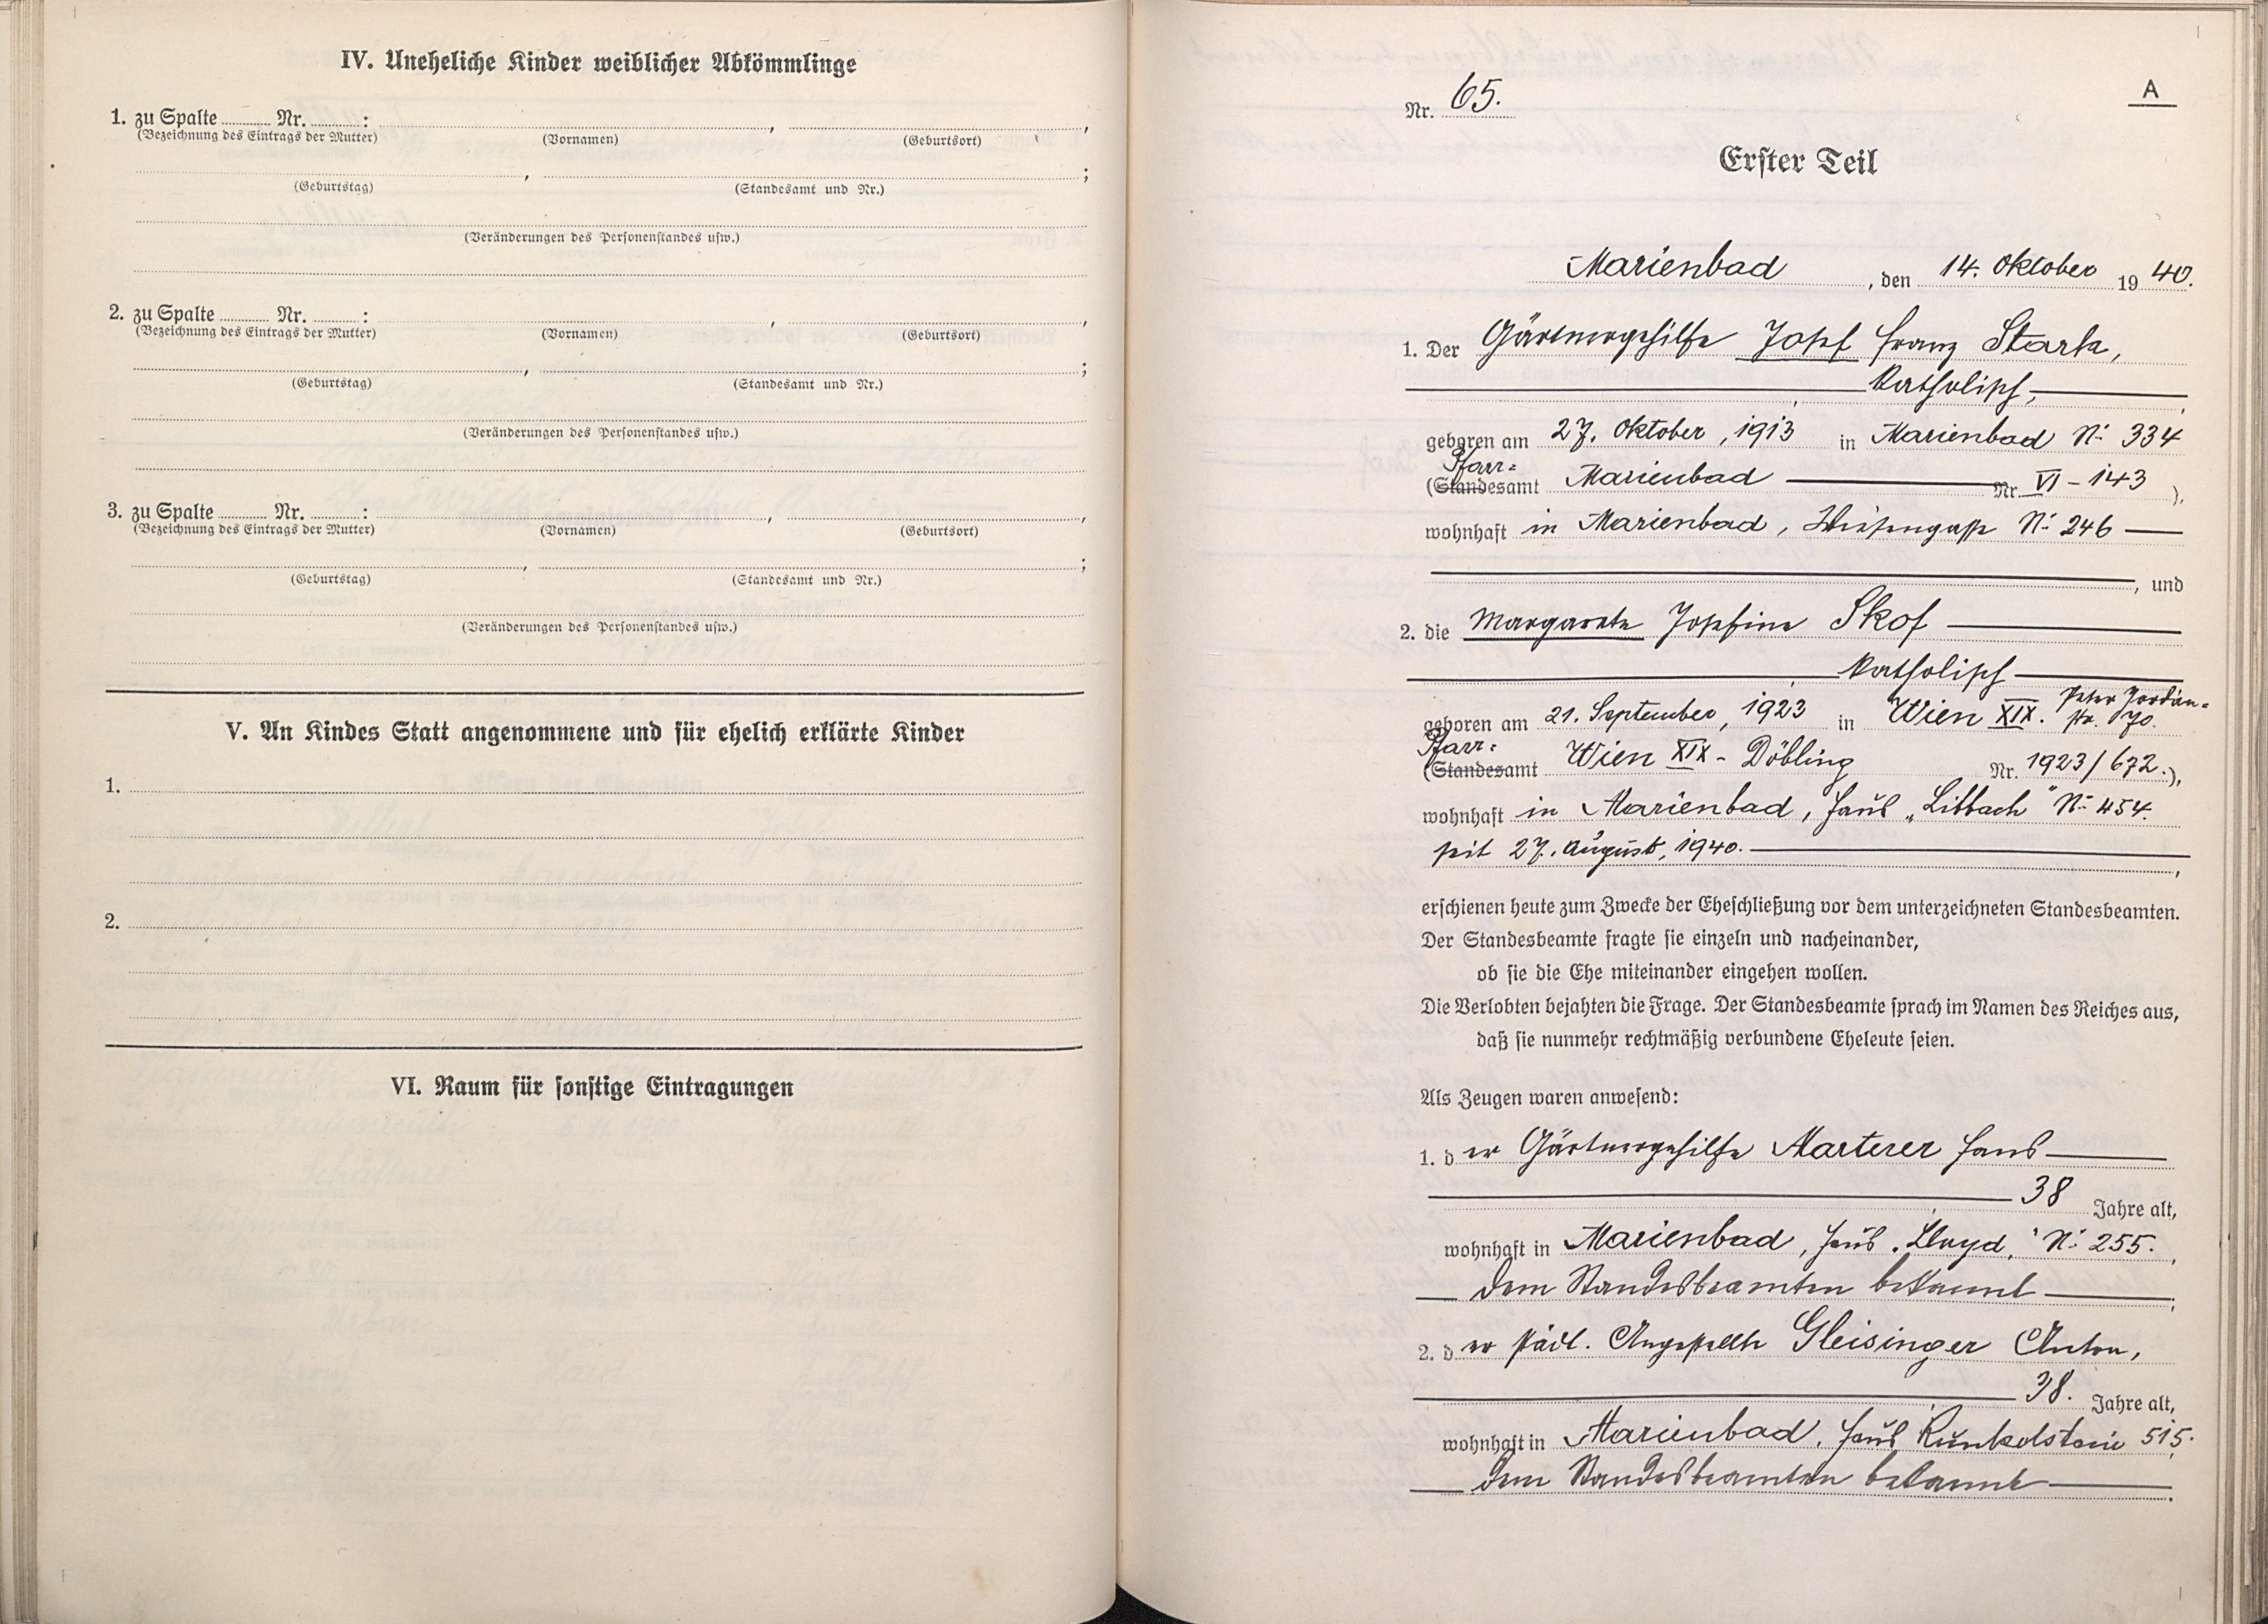 IV. Uneheliche Kinder weiblicher Abkömmlinge
1. zu Spalte ........ Nr. ........ : ........ , ........ ,
(Bezeichnung des Eintrags der Mutter) (Vornamen) (Geburtsort)
........ , ........ ;
(Geburtstag) (Standesamt und Nr.)
(Veränderungen des Personenstandes usw.)
2. zu Spalte ........ Nr. ........ : ........ , ........ ,
(Bezeichnung des Eintrags der Mutter) (Vornamen) (Geburtsort)
........ , ........ ;
(Geburtstag) (Standesamt und Nr.)
(Veränderungen des Personenstandes usw.)
3. zu Spalte ........ Nr. ........ : ........ , ........ ,
(Bezeichnung des Eintrags der Mutter) (Vornamen) (Geburtsort)
........ , ........ ;
(Geburtstag) (Standesamt und Nr.)
(Veränderungen des Personenstandes usw.)
V. An Kindes Statt angenommene und für ehelich erklärte Kinder
1.
2.
VI. Raum für sonstige Eintragungen
A
Nr. 65.
Erster Teil
Marienbad , den 14. Oktober 19 40.
1. Der Gärtnergehilfe Josef Franz Stark,
katholisch,
geboren am 27. Oktober, 1913 in Marienbad No 334
Pfarr-
(Standesamt Marienbad Nr. VI - 143 ),
wohnhaft in Marienbad, Wiesengasse No 246
, und
2. die Margarete Josefine Skof
katholisch
geboren am 21. September, 1923 in Wien XIX. Peter Jordan-
str. 70.
Pfarr-
(Standesamt Wien XIX - Döbling Nr. 1923/672.),
wohnhaft in Marienbad, Haus „Libbach" No 454.
seit 27. August, 1940.
erschienen heute zum Zwecke der Eheschließung vor dem unterzeichneten Standesbeamten.
Der Standesbeamte fragte sie einzeln und nacheinander,
ob sie die Ehe miteinander eingehen wollen.
Die Verlobten bejahten die Frage. Der Standesbeamte sprach im Namen des Reiches aus,
daß sie nunmehr rechtmäßig verbundene Eheleute seien.
Als Zeugen waren anwesend:
1. der Gärtnergehilfe Marterer Hans
38 Jahre alt,
wohnhaft in Marienbad, Haus „Lloyd" No 255.
dem Standesbeamten bekannt
2. der städt. Angestellte Gleisinger Anton,
38. Jahre alt,
wohnhaft in Marienbad, Haus Runkelstein 515.
dem Standesbeamten bekannt